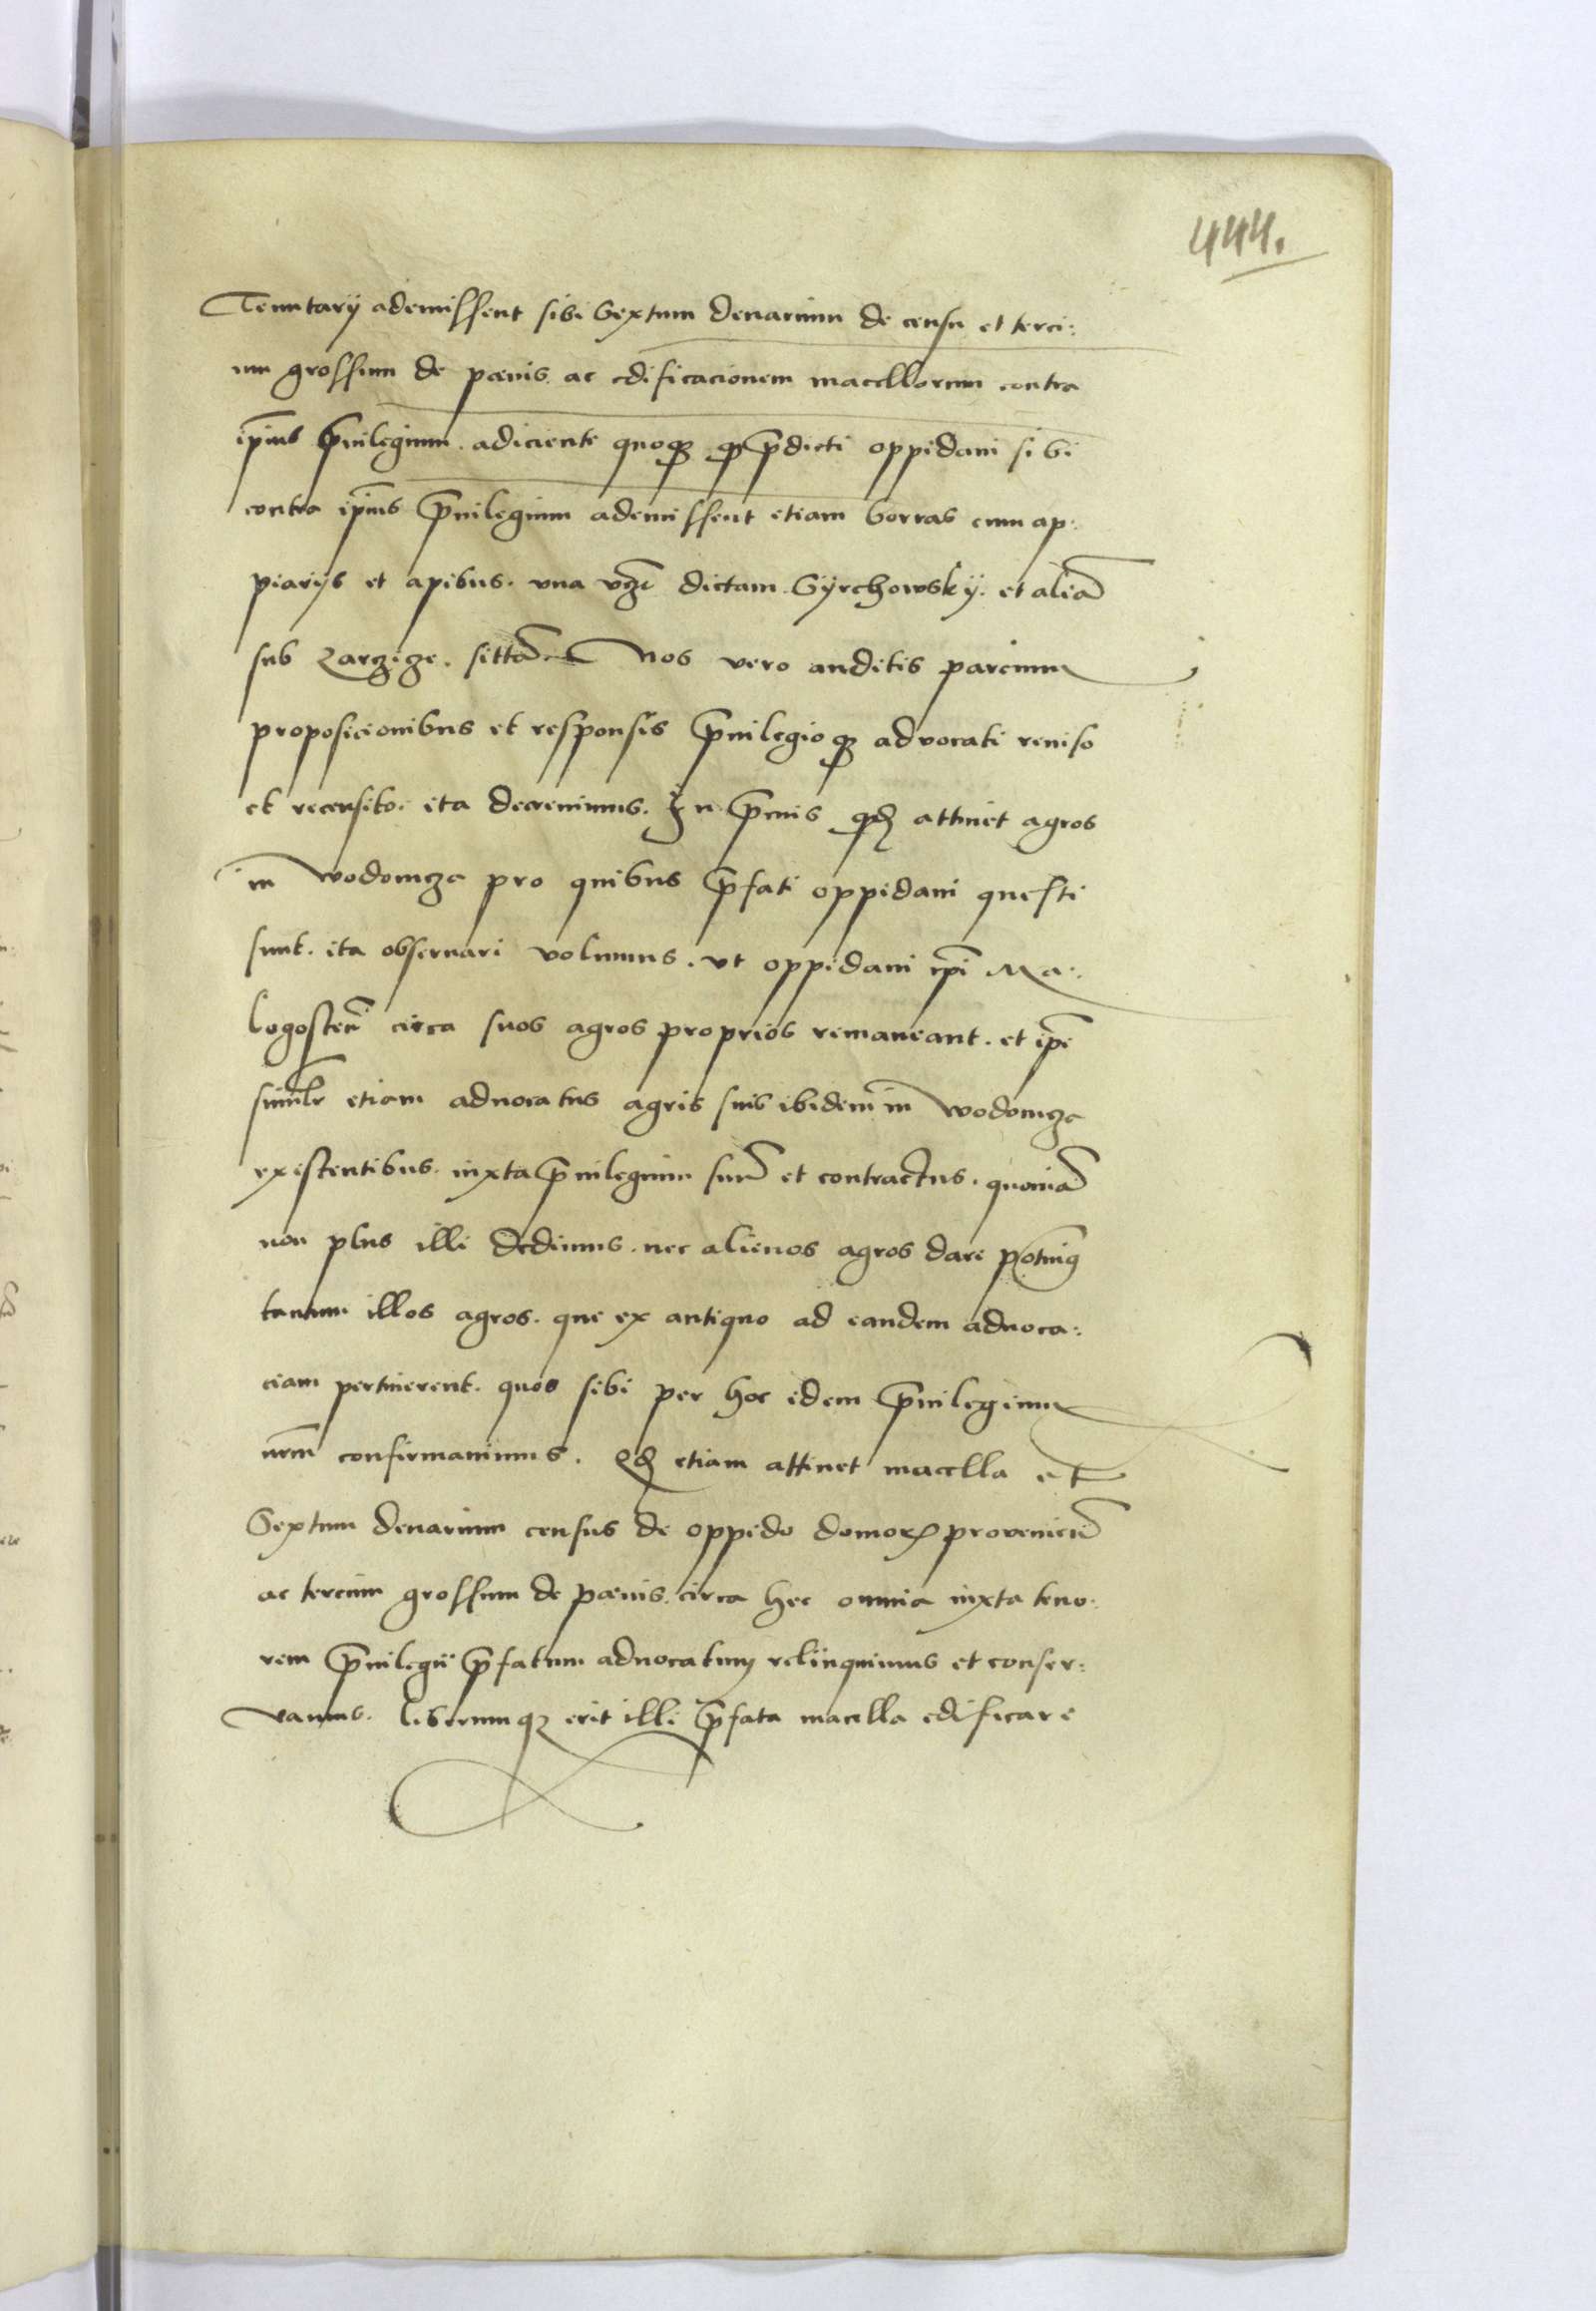 444.
Tenutarÿ ademissent sibi Sextum denarium de censu et terci:
um grossum de pœnis. ac edificacionem macellorum contra
ip̄ius p̄uilegium. adiciente quoqȝ qp̄dicti oppidani sibi
contra ip̄ius p̄uilegium ademissent etiam borras cum ap:
piarÿs et apibus. vna vȝ dictam Gÿrchowskÿ. et aliā
sub Zarzÿze. sittā. Nos vero auditis parcium
proposicionibus et responsis p̄uilegioqȝ advocati reuiso
et recensito. ita decreuimus. In p̄mis qd attinet agros
in wodomcza pro quibus p̄fati oppidani questi
sunt. ita obseruari volumus. vt oppidani ip̄i Ma:
logosteñ circa suos agros proprios remaneant. et ip̄e
simil̄r etiam aduocatus agris suis ibidem in wodomcza
existentibus. iuxta p̄uilegium suū et contractus. quoniā
non plus illi dedimus. nec alienos agros dare potuimꝰ
tantum illos agros. que ex antiquo ad eandem aduoca:
ciam pertinerent. quos sibi per hoc idem p̄uilegium
nr̄m confirmauimus. Qd etiam attinet macella et
Sextum denarium census de oppido domoꝝ proveniēn
ac tercium grossum de pœnis. circa hec omnia iuxta teno:
rem p̄uilegii p̄fatum aduocatum relinquimus et conser:
vamus. liberumqȝ erit illi p̄fata macella edificare